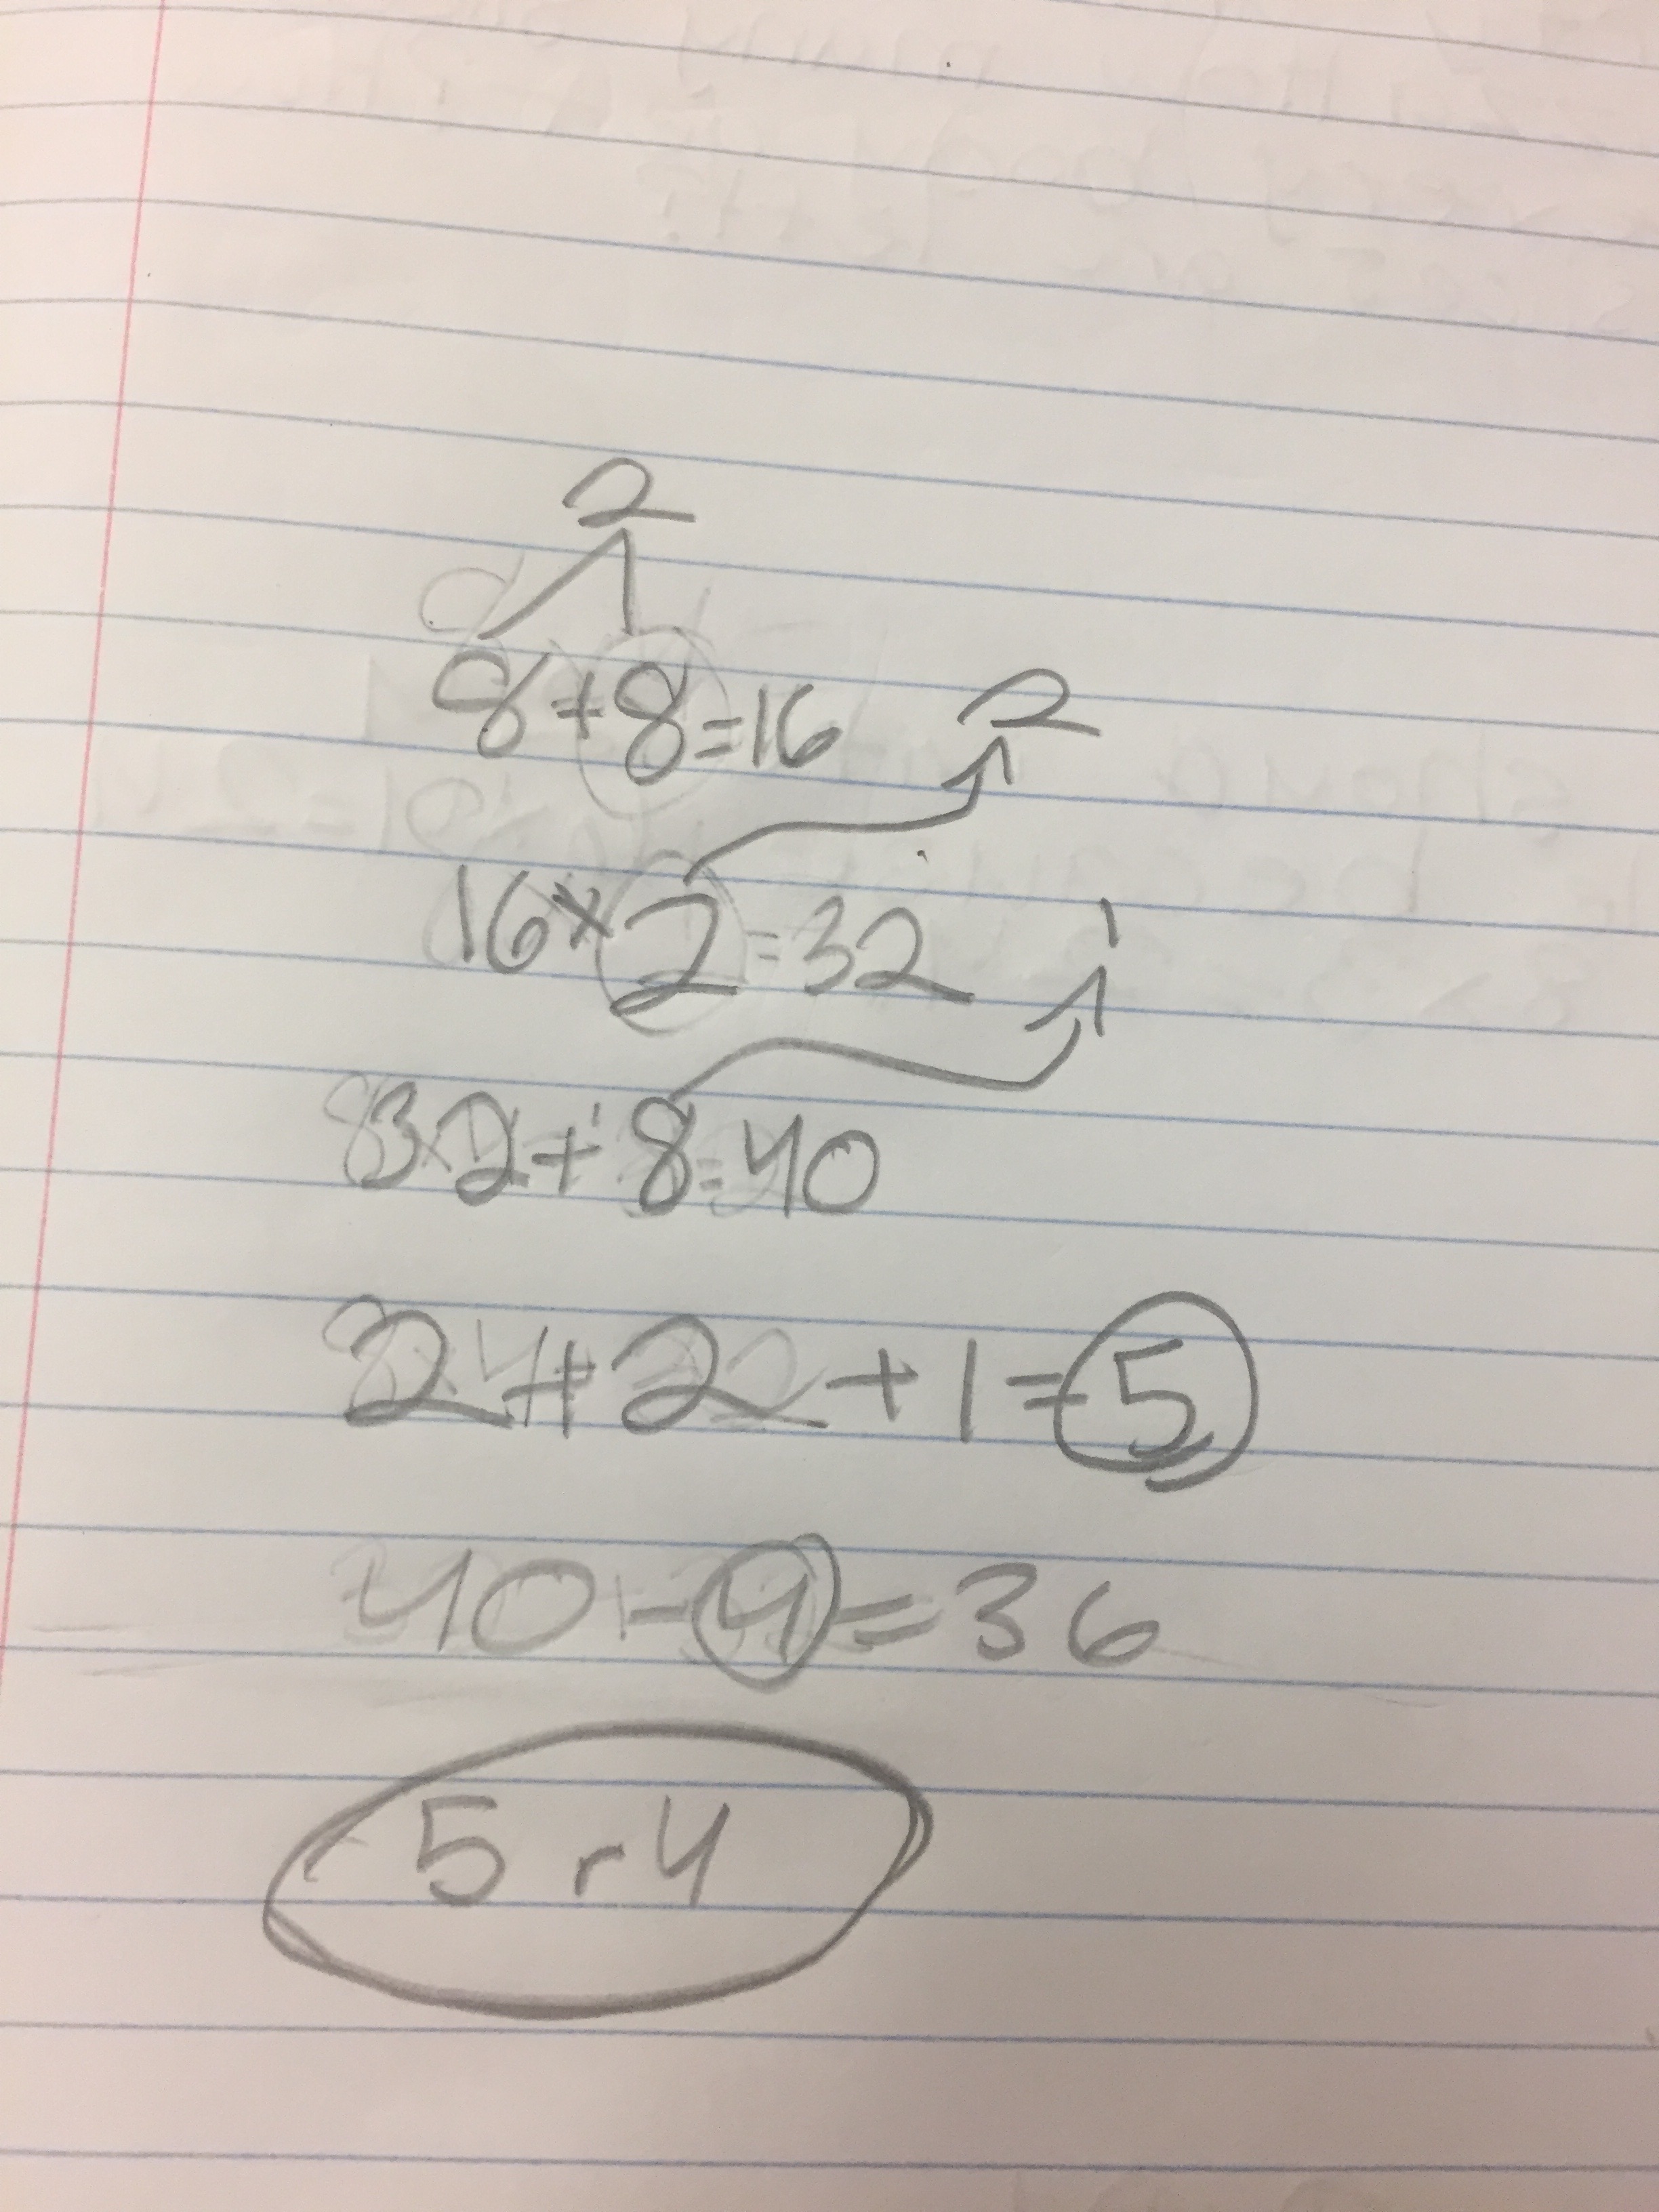 2
8+8=16
2
16×2=32
1
32+8=40
2+2+1=5
40-4=36
5 r4